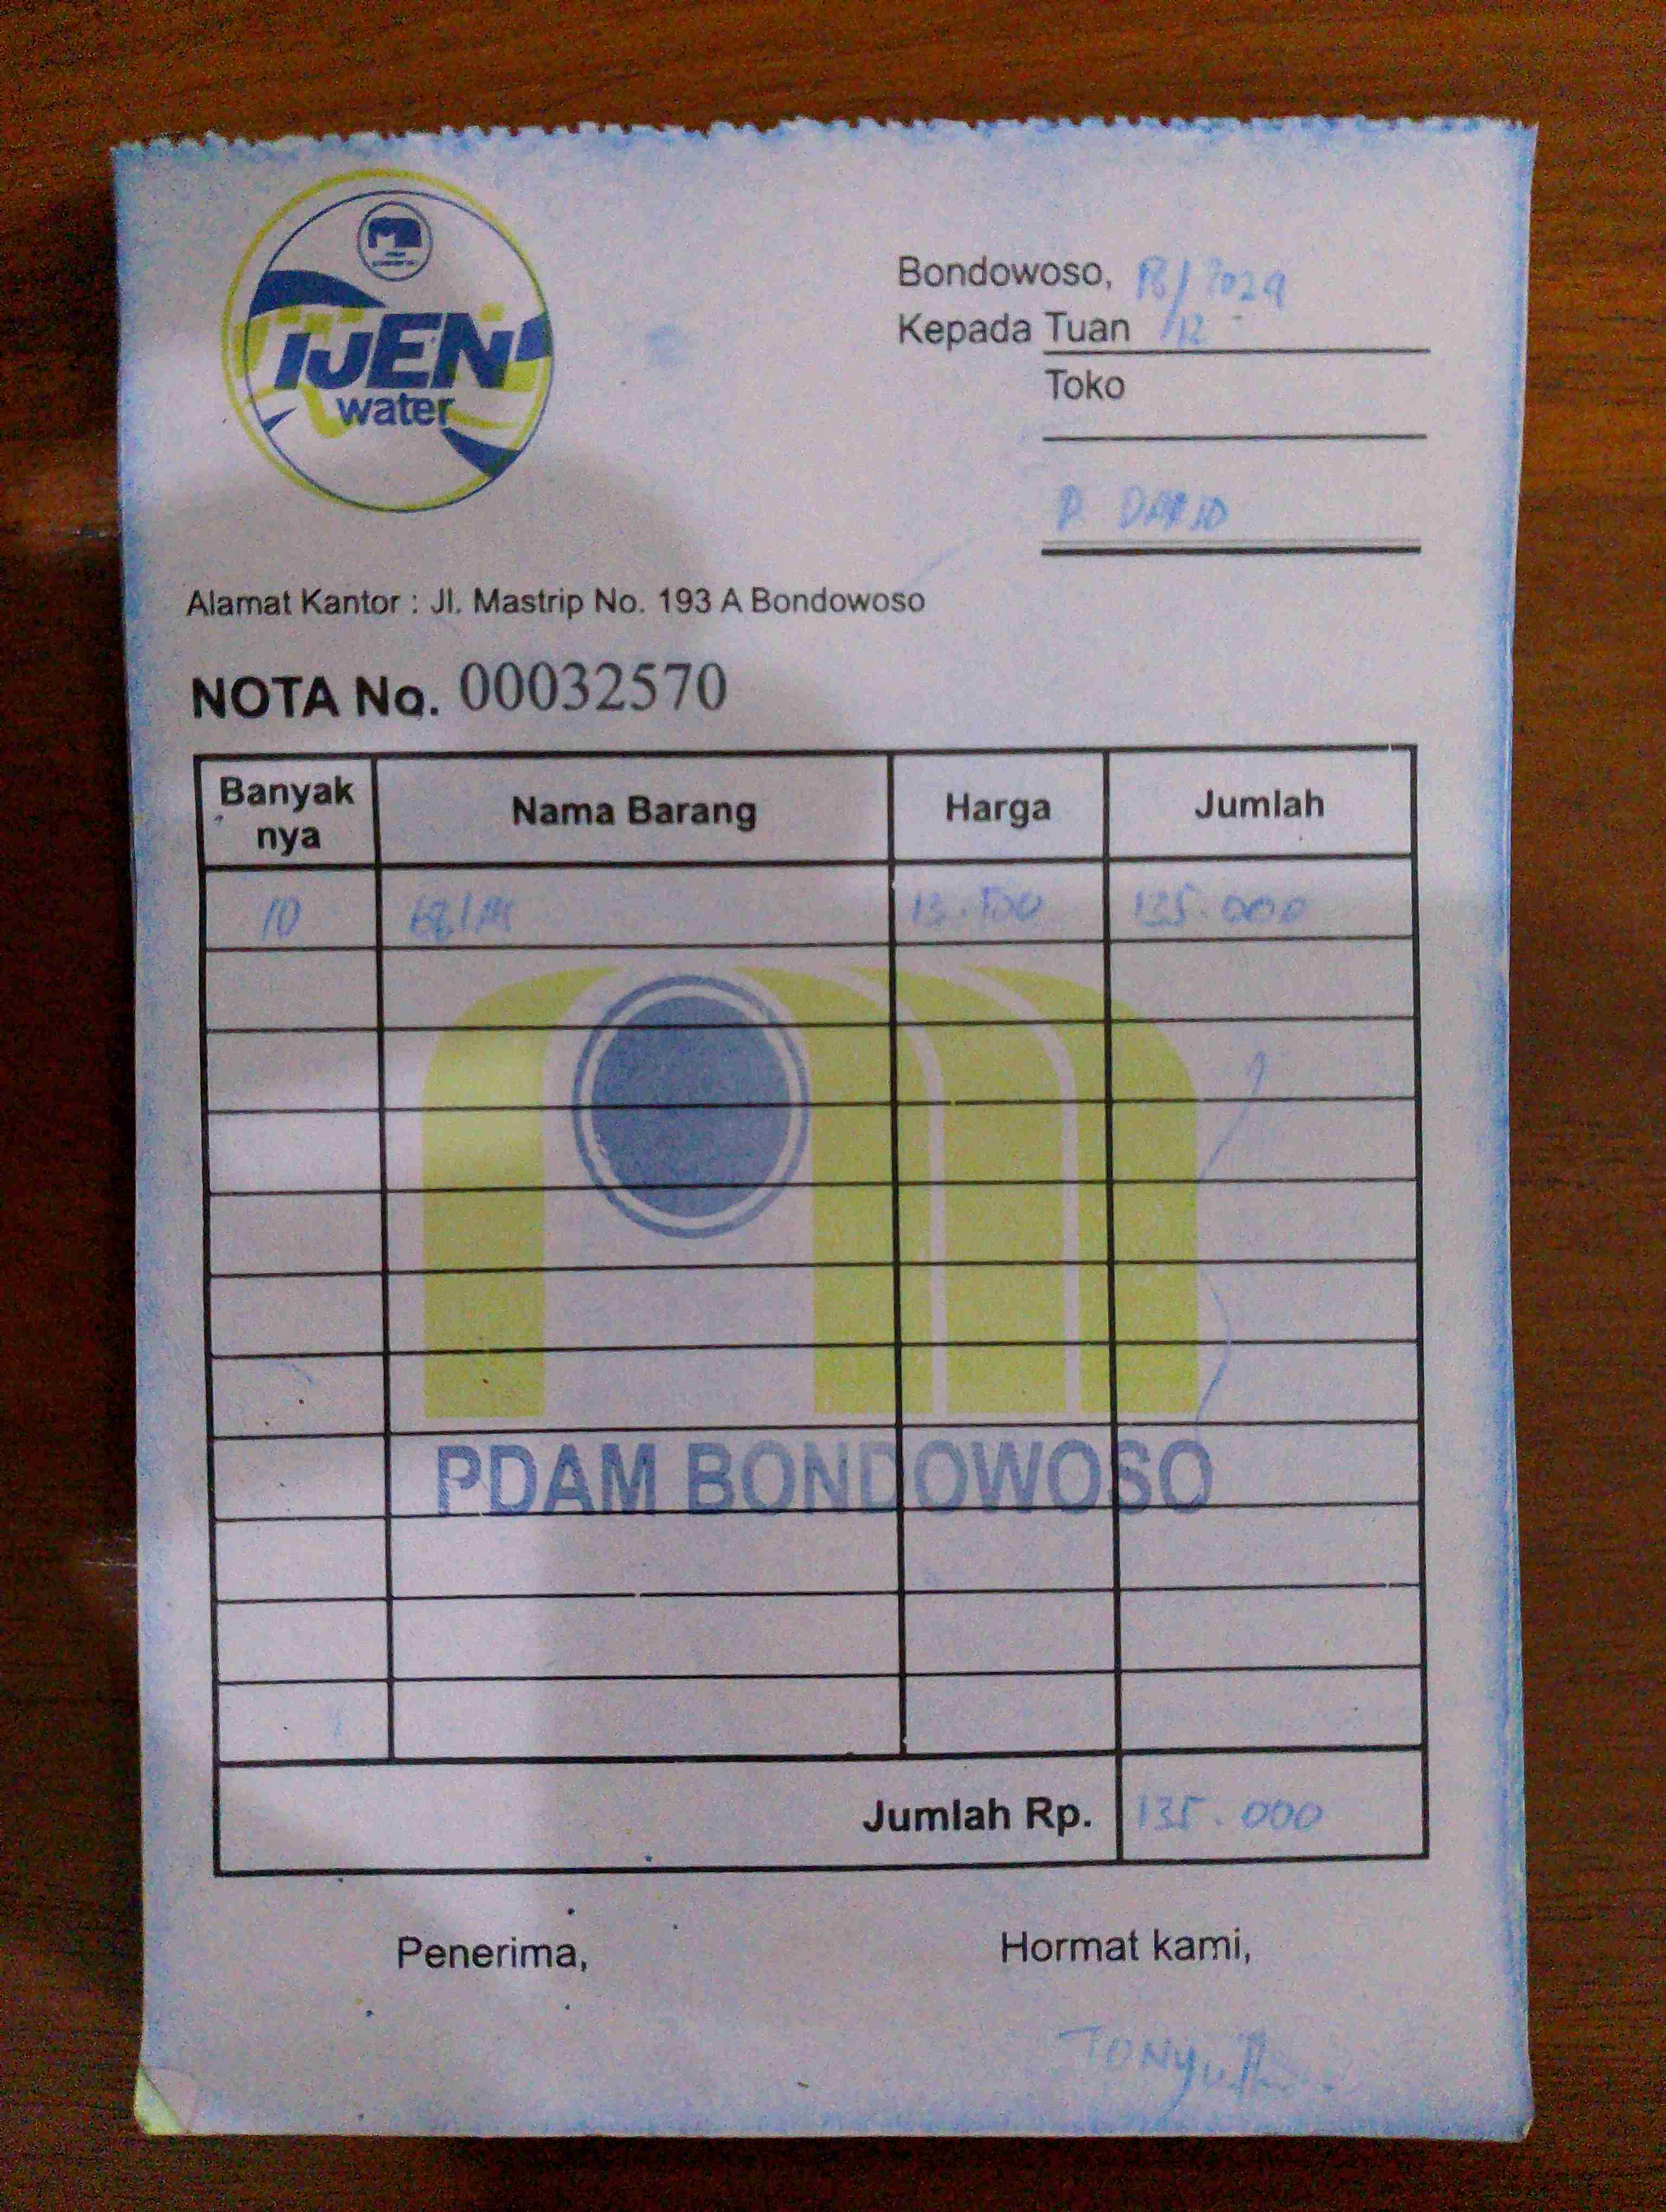 IJEN
water
Bondowoso, /2024
Kepada Tuan /12
Toko
P. DAVID
Alamat Kantor : Jl. Mastrip No. 193 A Bondowoso
NOTA No. 00032570
Banyak nya Nama Barang Harga Jumlah
10 13.500 135.000
PDAM BONDOWOSO
Jumlah Rp. 135.000
Penerima, Hormat kami,
TONY